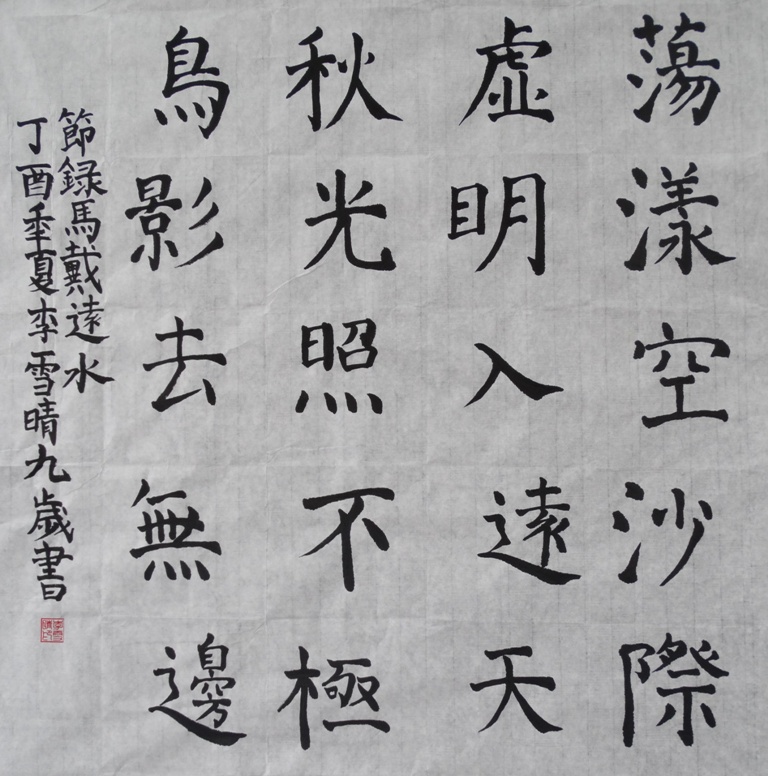 蕩漾空沙際
虛明入遠天
秋光照不極
鳥影去無邊
節録馬戴遠水
丁酉年夏李雪晴九歲書